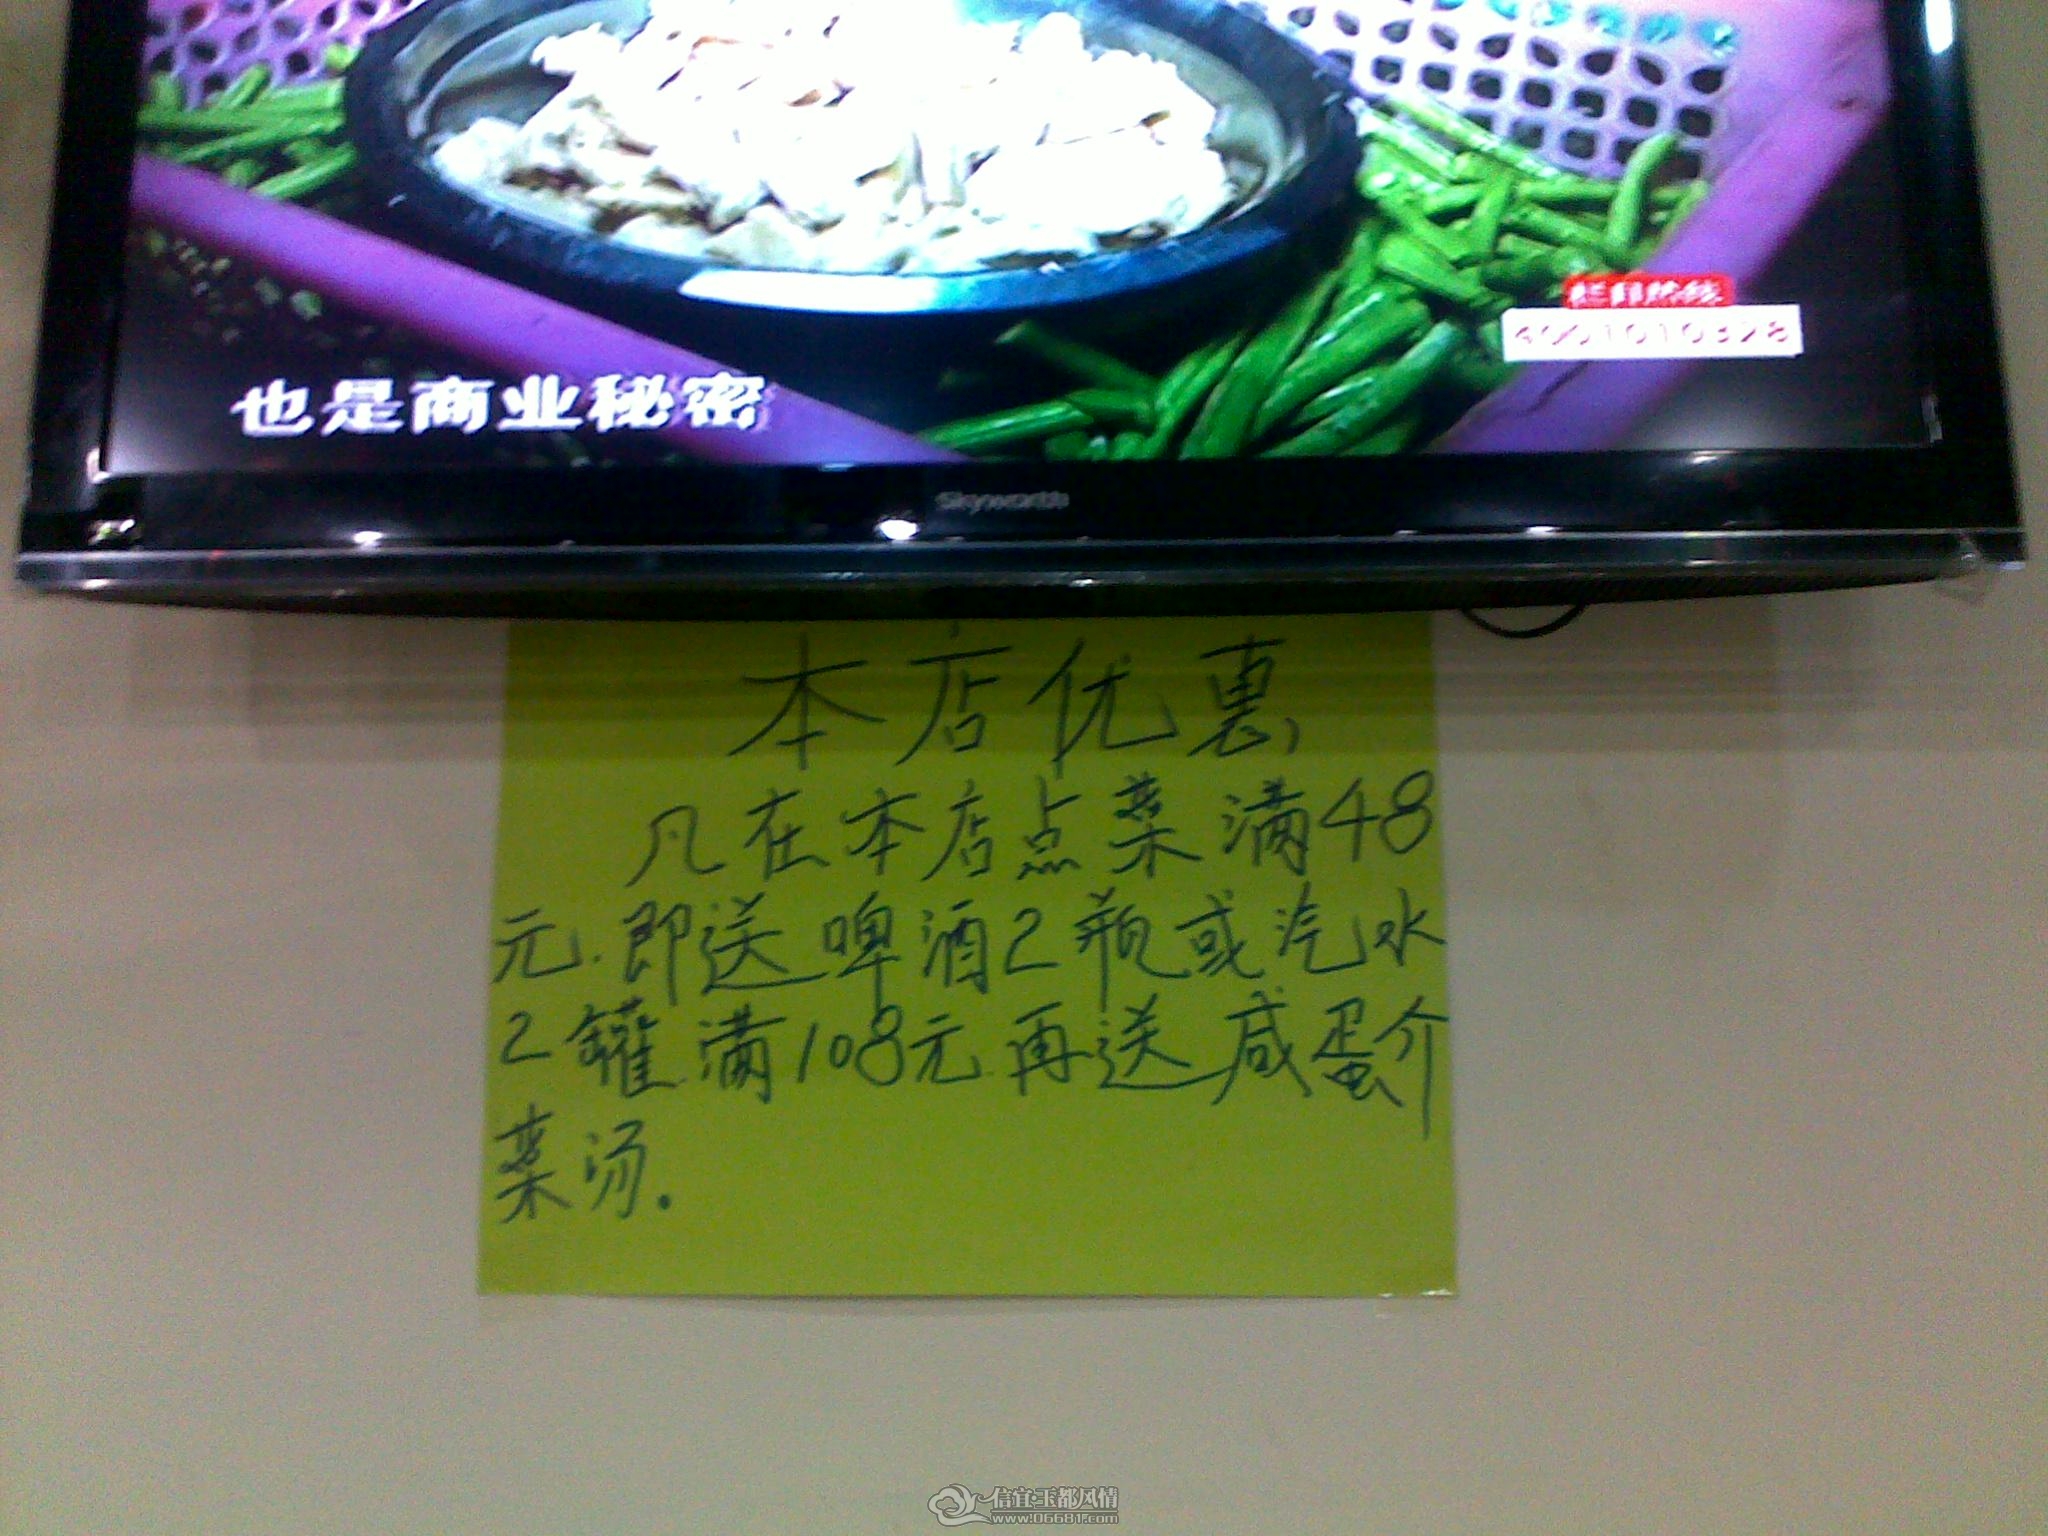 栏目热线
4001010328
也是商业秘密
Skyworth
本店优惠
凡在本店点菜满48
元.即送啤酒2瓶或汽水
2罐.满108元.再送咸蛋介
菜汤.
信宜·玉都风情
www.06681.com